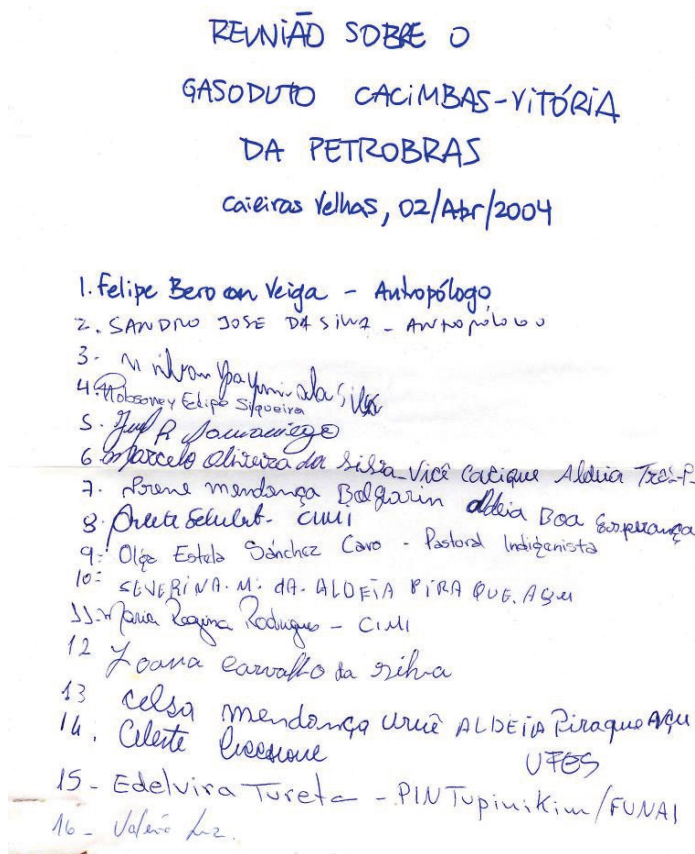 REUNIÃO SOBRE O
GASODUTO CACIMBAS-VITÓRIA
DA PETROBRAS
Caieiras Velhas, 02/Abr/2004
1. Felipe Berocan Veiga - Antropólogo
2. SANDRO JOSE DA SILVA - ANTROPÓLOGO
3- da Silva
4. Robsoney Edipo Siqueira
5.
6 Marcelo Oliveira da Silva - Vice Cacique Aldeia Tres-P
7. Irene mendonça aldeia Boa Esperança
8. CIMI
9= Olga Estela Sánchez Caro - Pastoral Indigenista
10= SEVERINA. M. dA. ALDEIA PIRAQUE. AÇU
11- Maria Regina Rodrigues - CIMI
12 Joana carvalho da silva
13 celsa mendonça ALDEIA Piraque AÇU
14. Celeste UFES
15 - Edelvira Tureta - PIN Tupinikim/FUNAI
16 - Valéria